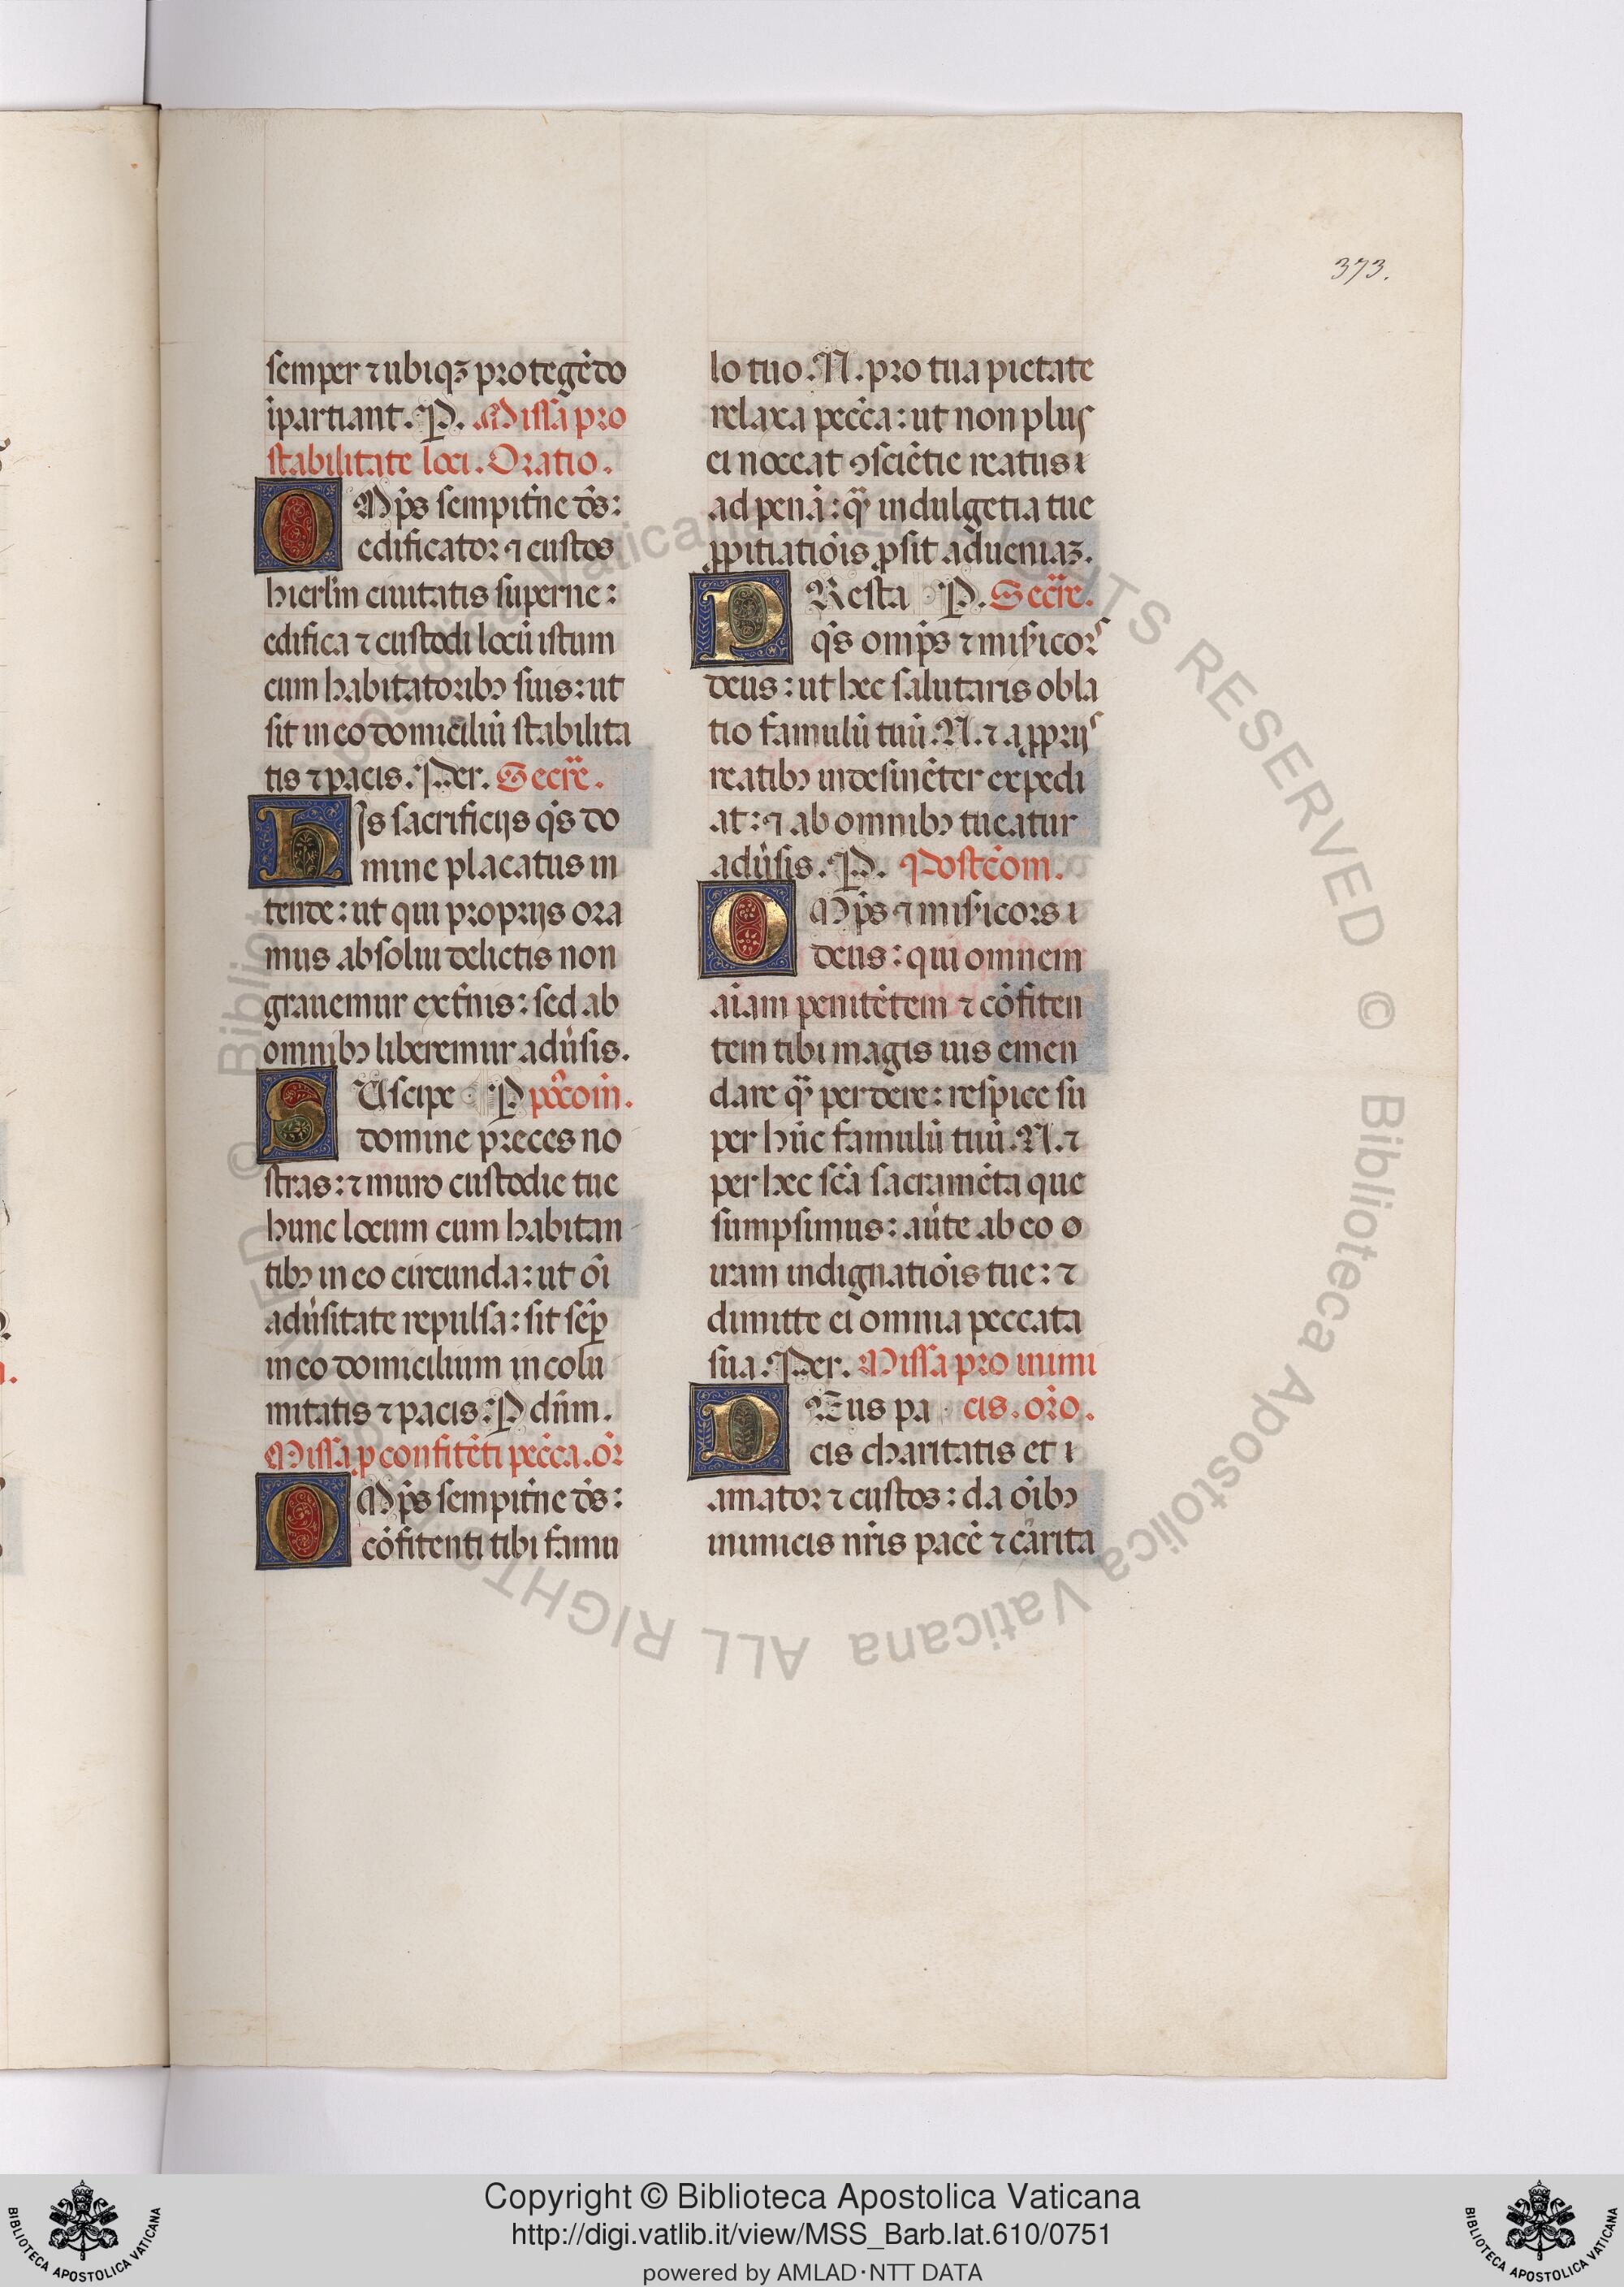 373.
semper ⁊ ubiqꝫ protegēdo
īpartiant. P. Missa pro
stabilitate loci. Oratio.
OMp̄s sempit̄ne d̄s:
edificator ⁊ custos
hierlm̄ ciuitatis superne:
edifica ⁊ custodi locū istum
cum habitatoribꝰ suis: ut
sit in eo domiciliū stabilita
tis ⁊ pacis. Per. Secr̄e.
HIs sacrificijs q̄s do
mine placatus in
tende: ut qui proprijs ora
mus absolui delictis non
grauemur ext̄nis: sed ab
omnibꝰ liberemur adūsis.
SUscipe P pꝰcom̄.
domine preces no
stras: ⁊ muro custodie tue
hunc locum cum habitan
tibꝰ in eo circunda: ut oī
adūsitate repulsa: sit sēp
in eo domicilium incolu
mitatis ⁊ pacis: P dn̄m.
Missa ꝓ confitēti pecc̄a. or̄
OMp̄s sempit̄ne d̄s:
cōfitenti tibi famu
lo tuo. N. pro tua pietate
relaxa pecc̄a: ut non plus
ei noceat ↄsciētie reatus i
ad penā: qͣ indulgētia tue
ꝓpitiatiōis ꝓsit ad ueniaꝫ.
PResta P. Secr̄e.
q̄s omp̄s ⁊ misꝭicors
deus: ut hec salutaris obla
tio famulū tuū. N. ⁊ a ꝓprijs
reatibꝰ indesinēter expedi
at: ⁊ ab omnibꝰ tueatur
adūsis. P. Postcōm.
OMp̄s ⁊ misꝭicors i
deus: qui omnem
aīam penitētem ⁊ cōfiten
tem tibi magis uis emen
dare qͣ perdere: respice su
per hūc famulū tuū. N. ⁊
per hec sc̄a sacramēta que
sumpsimus: aūte ab eo o
iram indignatiōis tue: ⁊
dimitte ei omnia peccata
sua. Per. Missa pro inimi
DEus pa cis. oro.
cis charitatis et i
amator ⁊ custos: da oībꝰ
inimicis nr̄is pacē ⁊ cārita
© Biblioteca Apostolica Vaticana ALL RIGHTS RESERVED © Biblioteca Apostolica Vaticana ALL RIGHTS RESERVED
Copyright © Biblioteca Apostolica Vaticana
http://digi.vatlib.it/view/MSS_Barb.lat.610/0751
powered by AMLAD·NTT DATA
BIBLIOTECA APOSTOLICA VATICANA
BIBLIOTECA APOSTOLICA VATICANA